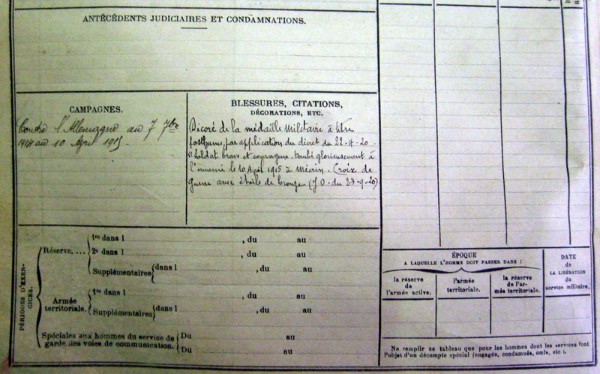 ANTÉCÉDENTS JUDICIAIRES ET CONDAMNATIONS.
CAMPAGNES.
Contre l'Allemagne au 7 7bre
1914 au 10 April 1915
BLESSURES, CITATIONS,
DÉCORATIONS, ETC.
Décoré de la médaille Militaire à titre
posthume, par application du décret du
Soldat brave et courageux. tombé glorieusement à
l'ennemi le 10 April 1915 à Croix de
guerre avec étoile de bronze (J.O. du
PÉRIODES D'EXER-
CICES.
Réserve, ....
1re dans l , du au
2e dans l , du au
Supplémentaires dans l , du au
Armée
territoriale.
1re dans l , du au
Supplémentaires dans l , du au
Spéciales aux hommes du service de
garde des voies de communication.
Du au
Du au
ÉPOQUE
A LAQUELLE L'HOMME DOIT PASSER DANS :
la réserve
de
l'armée active.
l'armée
territoriale.
la réserve
de l'ar-
mée territoriale.
DATE
de
LA LIBÉRATION
du
service militaire.
Ne remplir ce tableau que pour les hommes dont les services font
l'objet d'un décompte spécial (engagés, condamnés, omis, etc.).